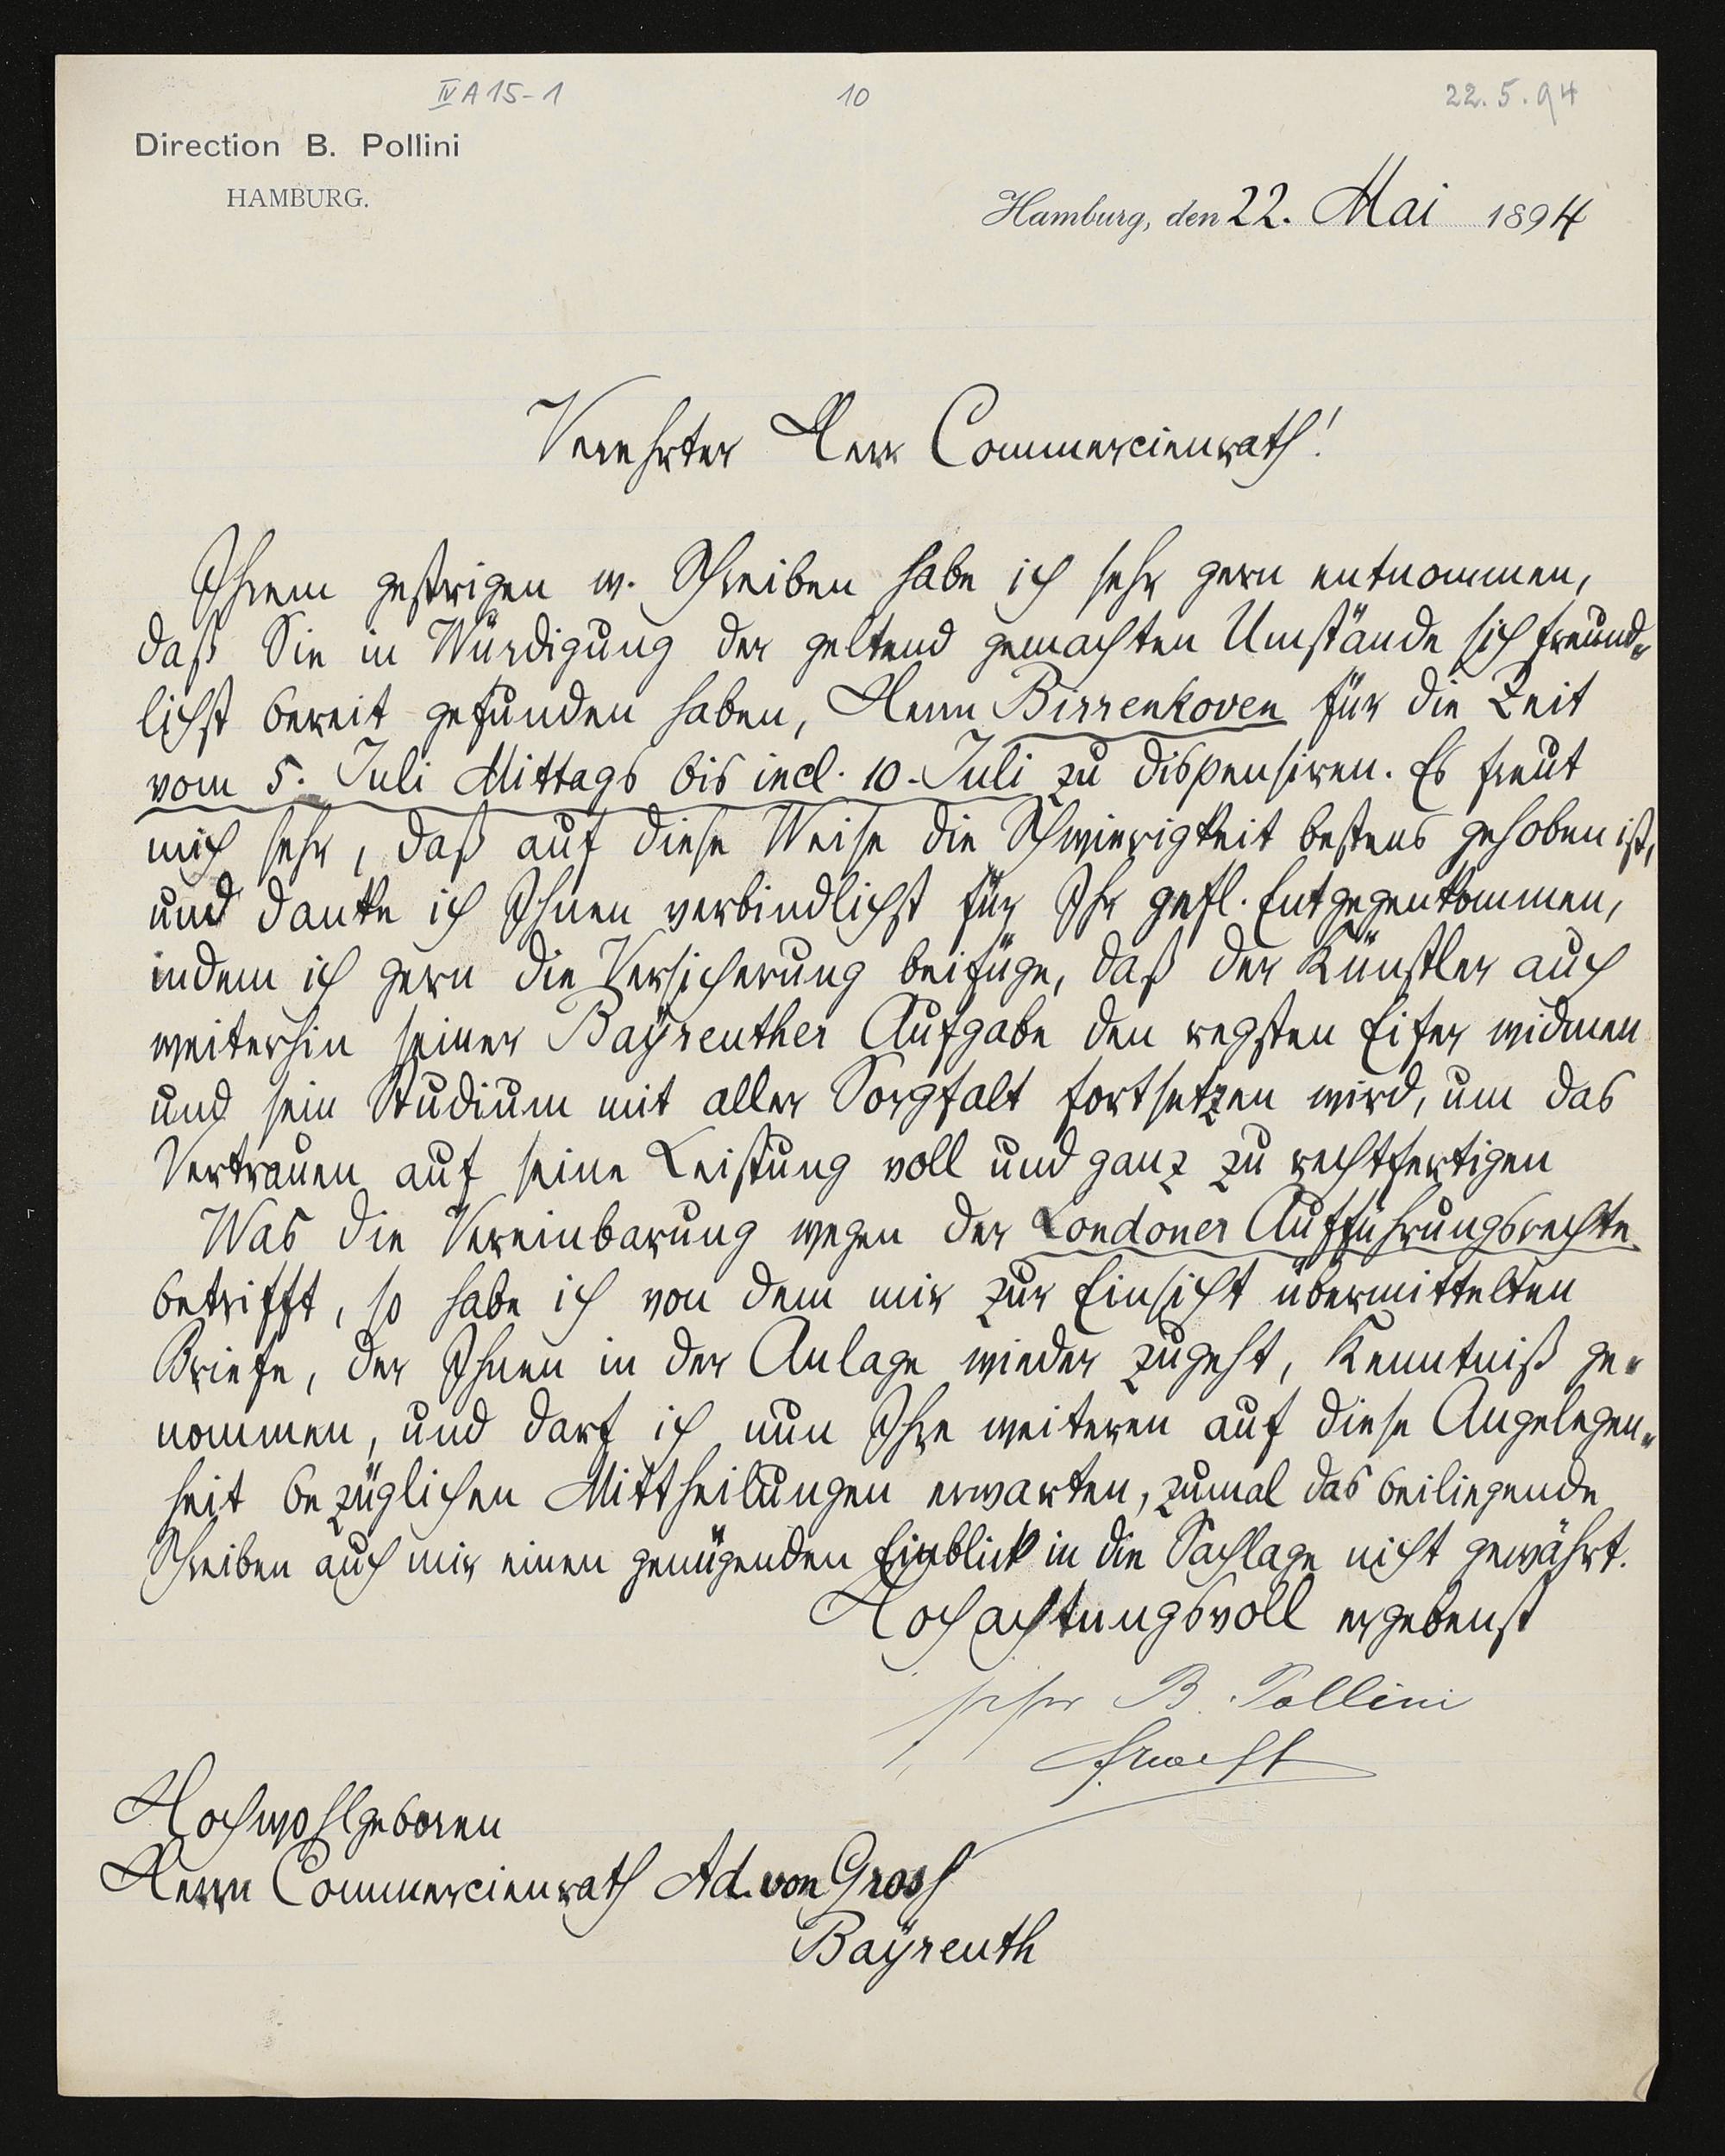 IV A 15-1 10 22.5.94
Direction B. Pollini
HAMBURG.
Hamburg, den 22. Mai 1894
Verehrter Herr Commercienrath!
Ihrem gestrigen w. Schreiben habe ich sehr gern entnommen,
daß Sie in Würdigung der geltend gemachten Umstände sich freund-
lichst bereit gefunden haben, Herrn Birrenkoven für die Zeit
vom 5. Juli Mittags bis incl. 10. Juli zu dispensiren. Es freut
mich sehr, daß auf diese Weise die Schwierigkeit bestens gehoben ist,
und danke ich Ihnen verbindlichst für Ihr gefl. Entgegenkommen,
indem ich gern die Versicherung beifüge, daß der Künstler auch
weiterhin seiner Baÿreuther Aufgabe den regsten Eifer widmen
und sein Studium mit aller Sorgfalt fortsetzen wird, um das
Vertrauen auf seine Leistung voll und ganz zu rechtfertigen
Was die Vereinbarung wegen der Londoner Aufführungsrechte
betrifft, so habe ich von dem mir zur Einsicht übermittelten
Briefe, der Ihnen in der Anlage wieder zugeht, Kenntniß ge-
nommen, und darf ich nun Ihre weiteren auf diese Angelegen-
heit bezüglichen Mittheilungen erwarten, zumal das beiliegende
Schreiben auch mir einen genügenden Einblick in die Sachlage nicht gewährt.
Hochachtungsvoll ergebenst
B. Pollini
Hochwohlgeboren
Herrn Commercienrath Ad. von Gross
Baÿreuth